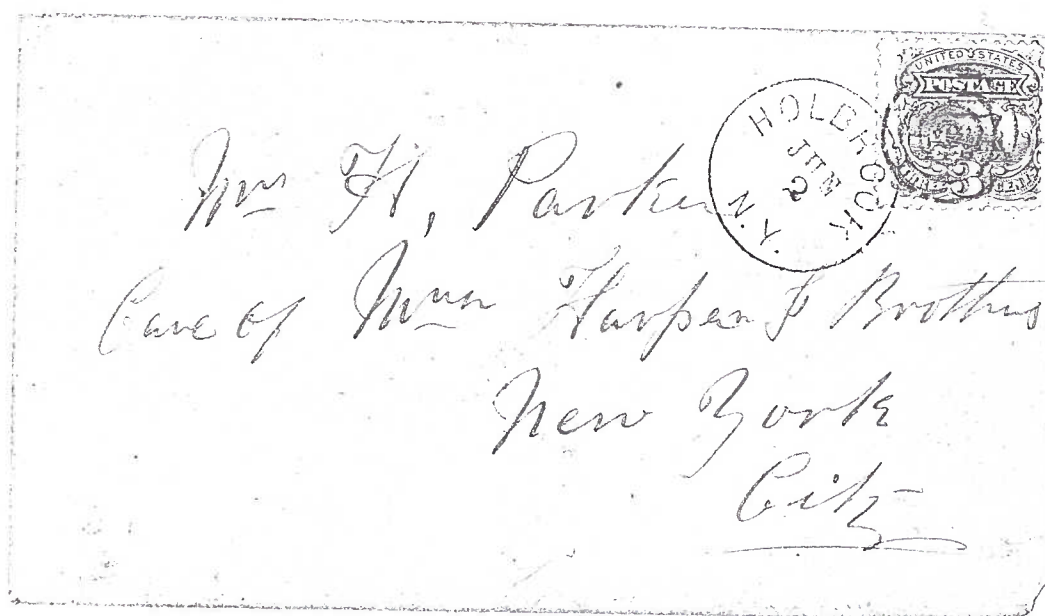 UNITED STATES
POSTAGE
HOLBROOK
JUN
2
N.Y.
Mrs H, Parker
Care of Messrs Harper & Brothers
New York
City